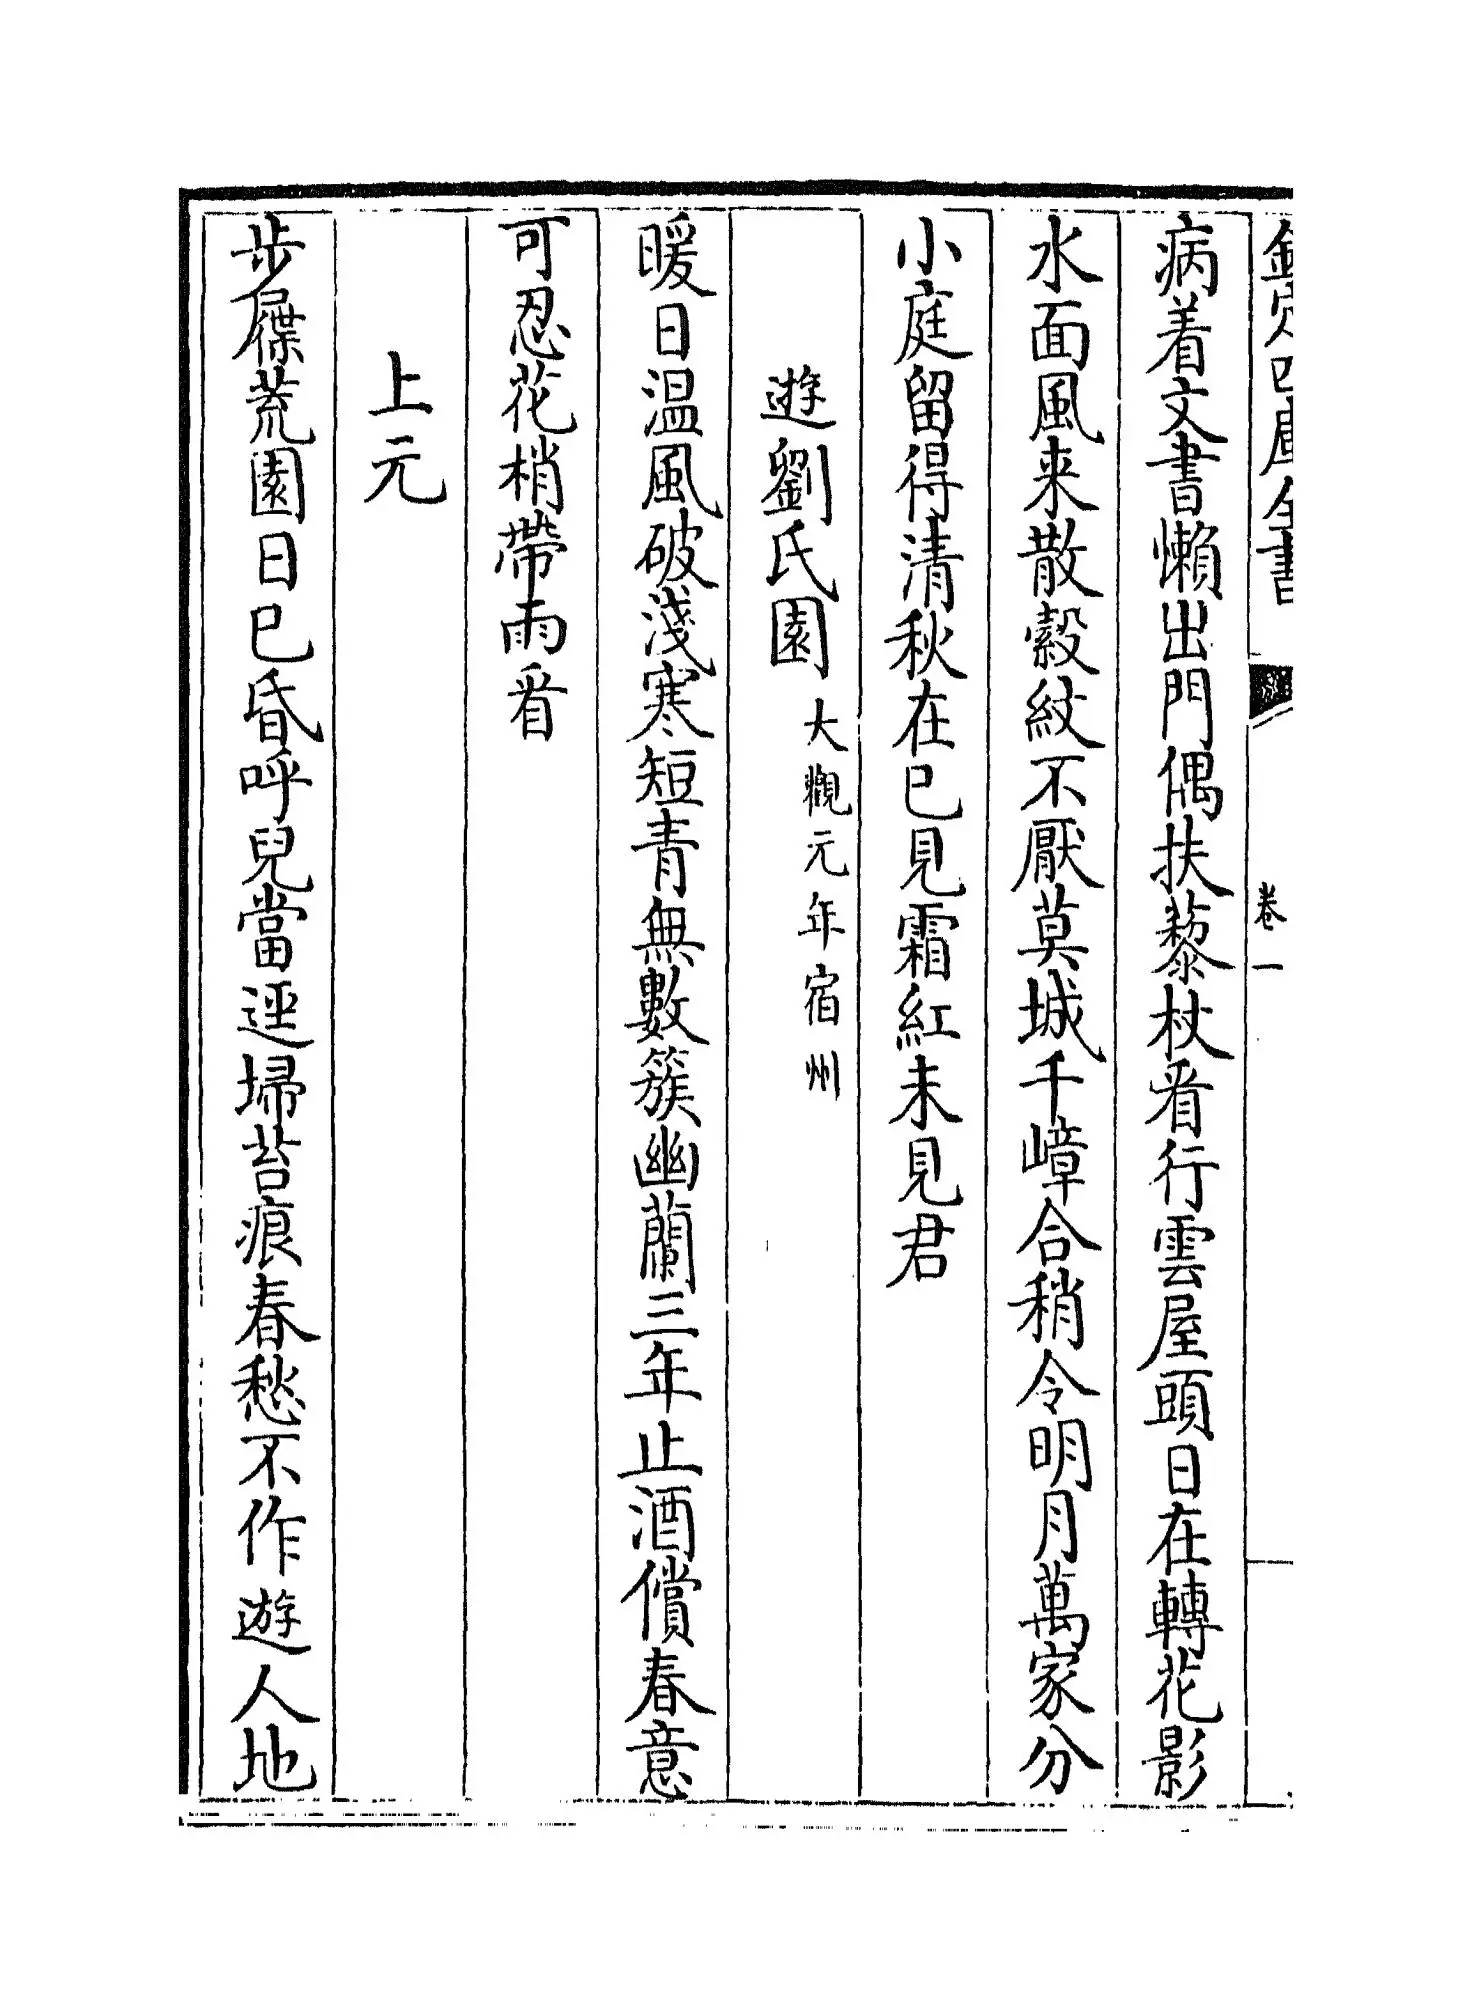 欽定四庫全書
卷一
病着文書懶出門偶扶藜杖看行雲屋頭日在轉花影
水面風来散縠紋不厭莫城千嶂合稍令明月萬家分
小庭留得清秋在已見霜紅未見君
遊劉氏園大觀元年宿州
暖日温風破淺寒短青無數簇幽蘭三年止酒償春意
可忍花梢帶雨看
上元
步屧荒園日已昏呼兒當逕埽苔痕春愁不作遊人地